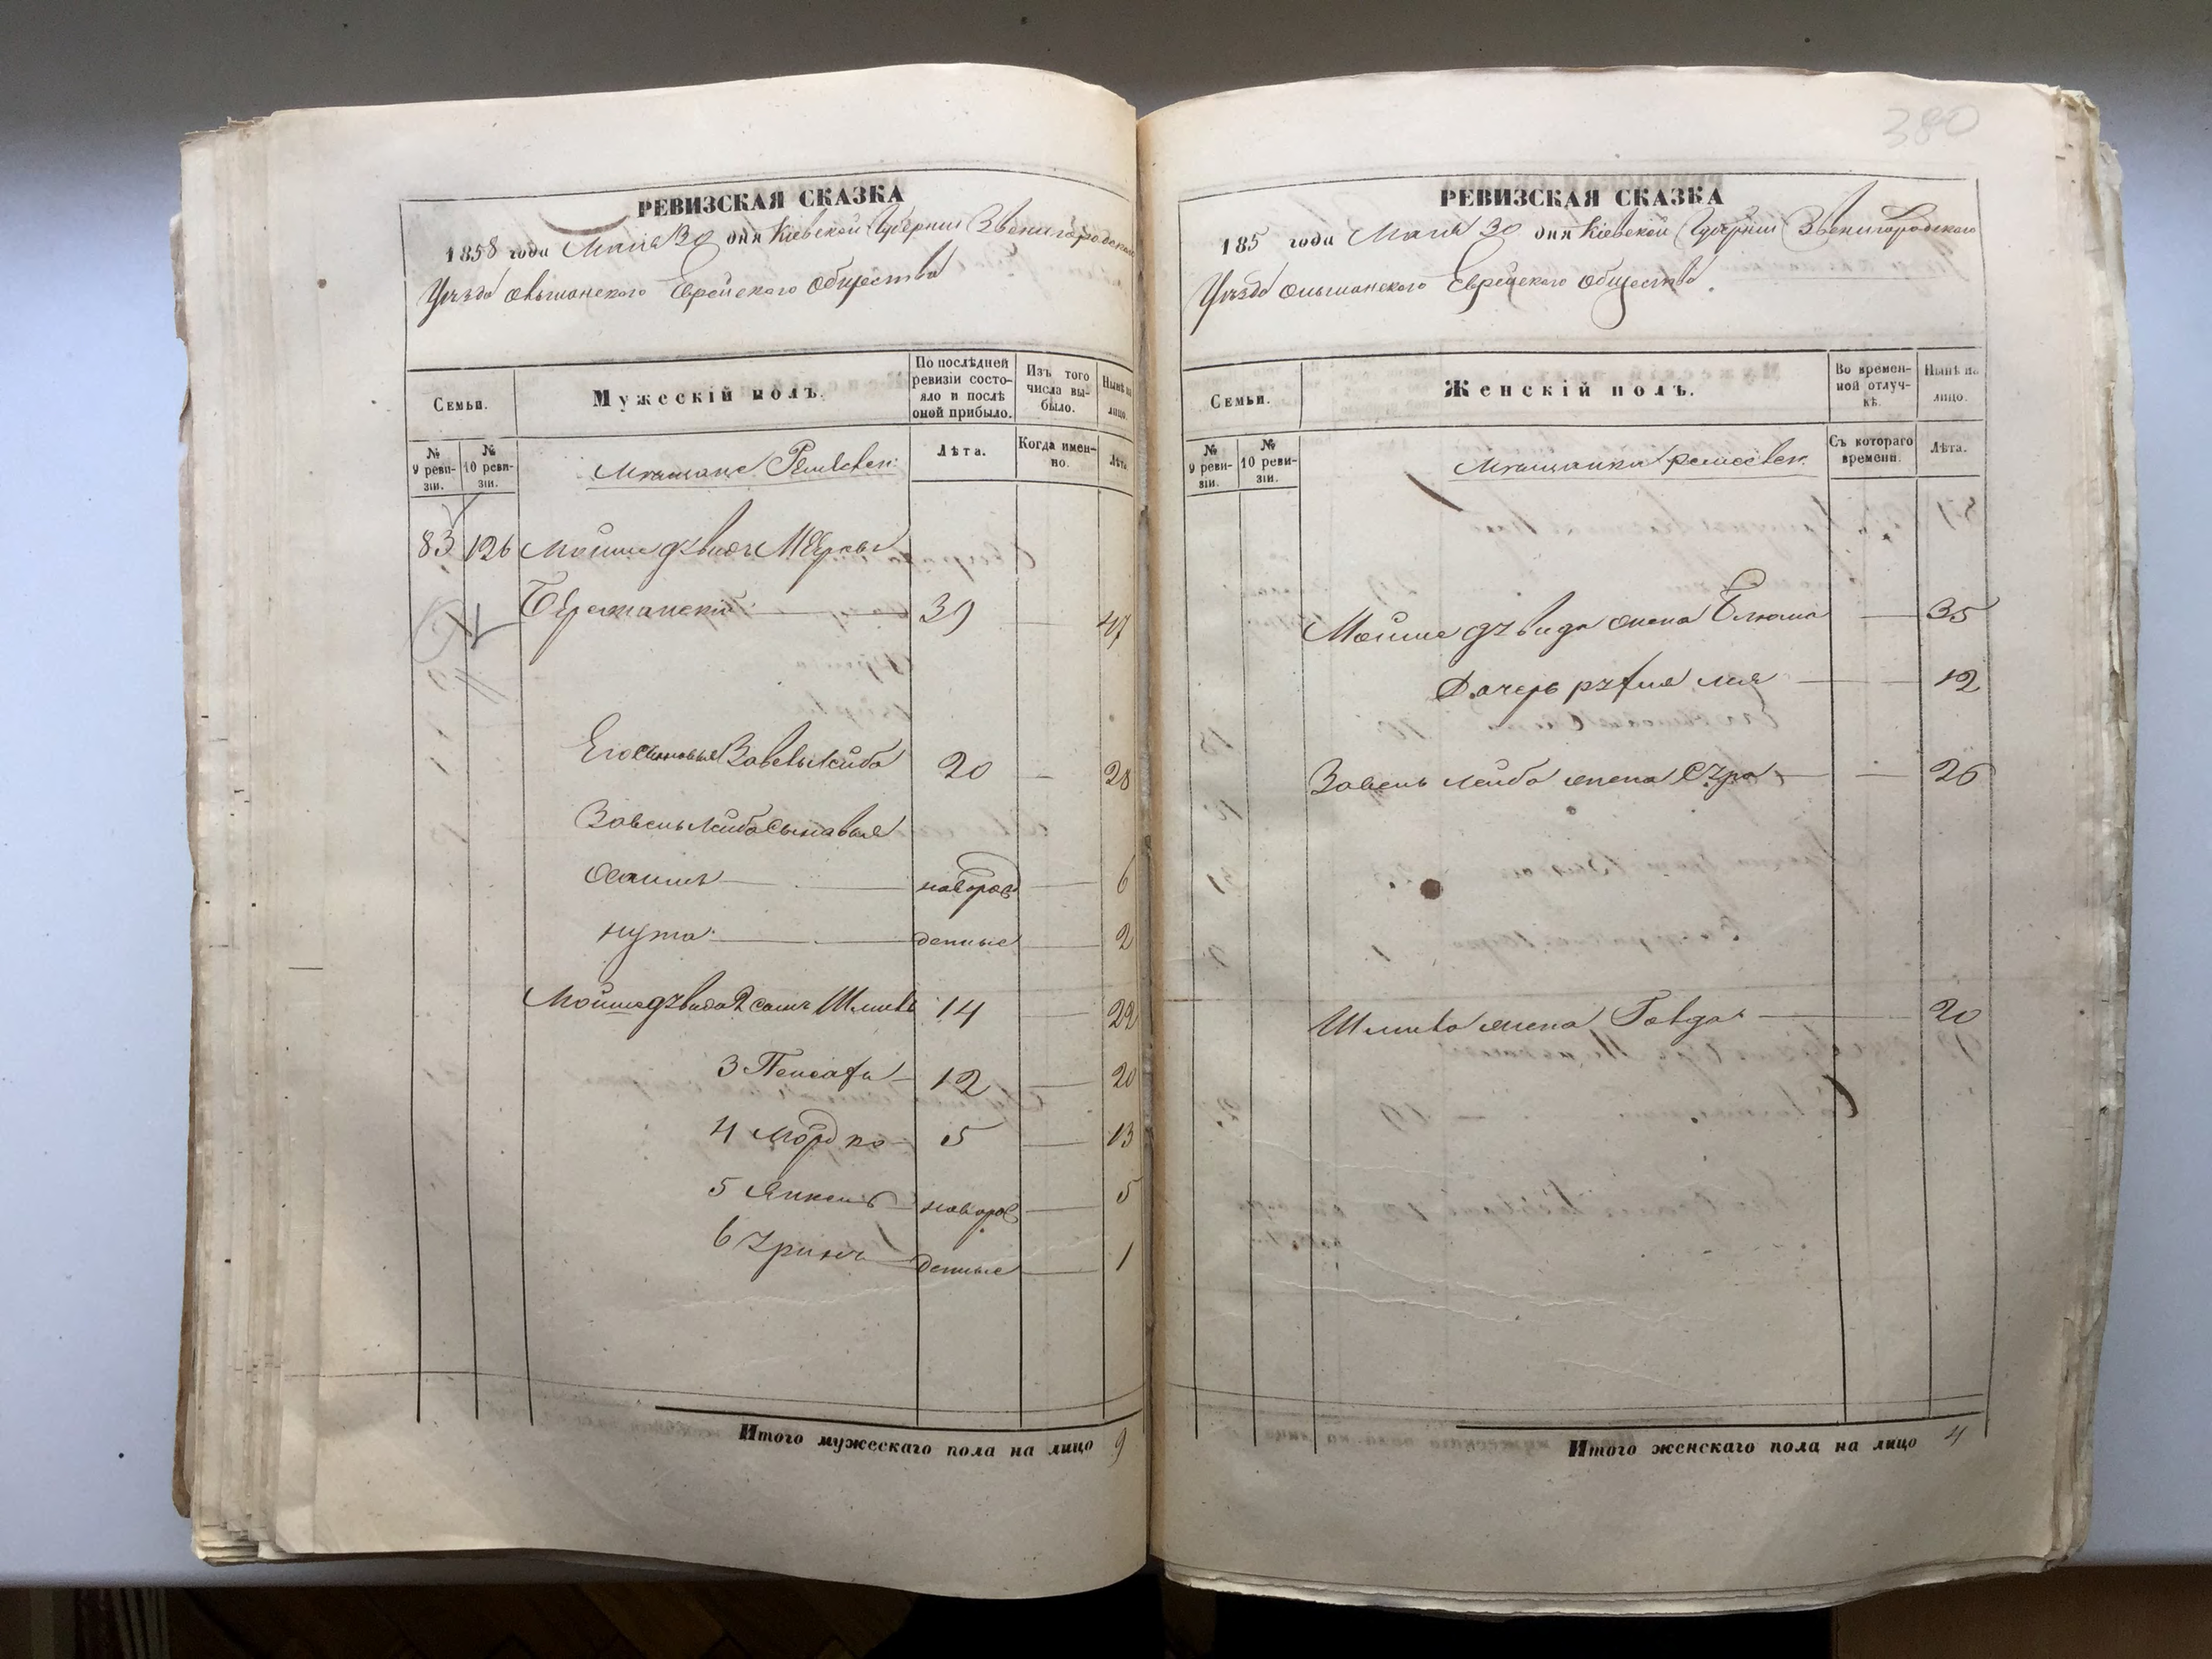 РЕВИЗСКАЯ СКАЗКА
1858 года Маія 30 дня Кіевской Губерніи Звенигородскаго
Уѣзда Ольшанскаго Еврейскаго Общества
Семьи.
Мужескій полъ.
По послѣдней ревизіи состояло и послѣ оной прибыло.
Изъ того числа выбыло.
Нынѣ на лицо.
№ 9 ревизіи.
№ 10 ревизіи.
Мѣщане
Лѣта.
Когда именно.
Лѣта.
83 126 Мойше дъвидъ
39 — 47
Его сыновья Завель Лейба 20 — 28
Завель Лейба Сыновья
новорож — 6
нута — денные — 2
Мойше дъвида 2 сынъ Шлиома 14 — 22
3 12 — 20
4 Мордко 5 — 13
5 Янкель новорож — 5
6 денные — 1
Итого мужескаго пола на лицо 9
380
РЕВИЗСКАЯ СКАЗКА
185 года Маія 30 дня Кіевской Губерніи Звенигородскаго
Уѣзда Ольшанскаго Еврейскаго Общества.
Семьи.
Женскій полъ.
Во временной отлучкѣ.
Нынѣ на лицо.
№ 9 ревизіи.
№ 10 ревизіи.
Мѣщанки
Съ котораго времени.
Лѣта.
Мойше дъвида жена Блюма — 35
Дочерь лия — 12
Завель Лейба жена Сура — 26
жена — 20
Итого женскаго пола на лицо 4